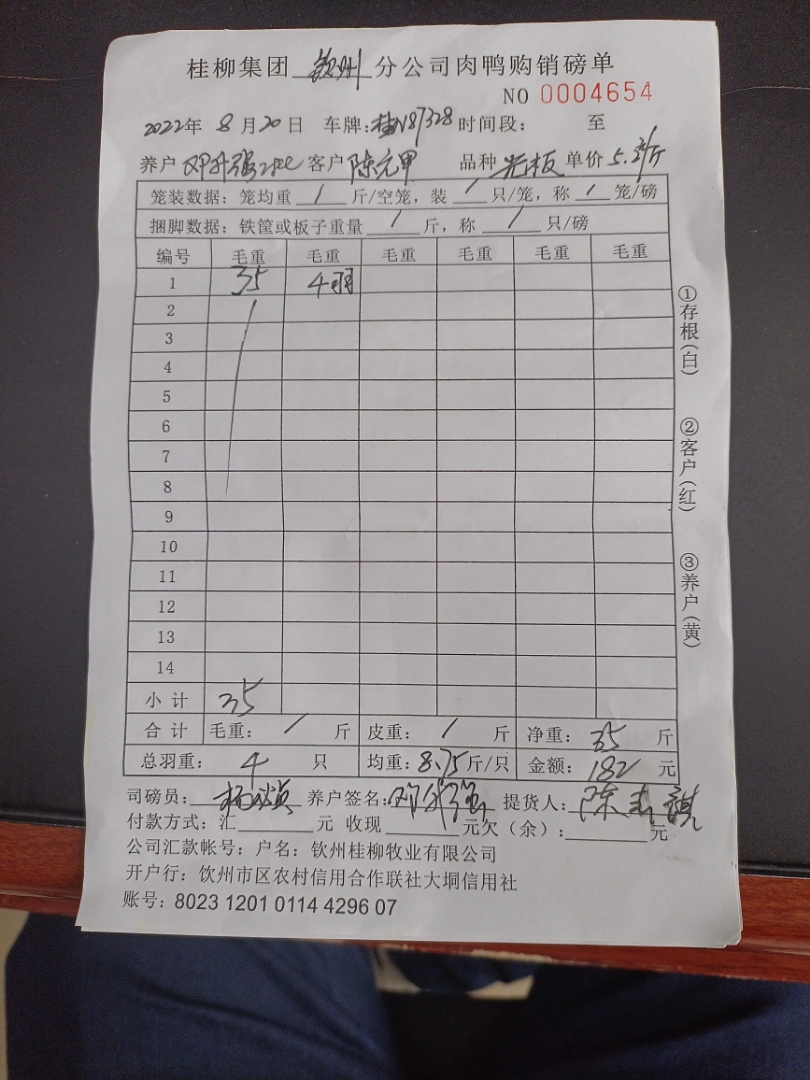 桂柳集团 钦州 分公司肉鸭购销磅单
NO 0004654
2022年 8月20日 车牌:桂N87328 时间段: 至
养户 邓升强 客户 陈元甲 品种 光板 单价 5.2/斤
笼装数据: 笼均重 / 斤/空笼, 装 / 只/笼, 称 / 笼/磅
捆脚数据: 铁筐或板子重量 / 斤, 称 / 只/磅
编号 毛重 毛重 毛重 毛重 毛重 毛重
1 35 4羽
2
3
4
5
6
7
8
9
10
11
12
13
14
小计 35
合计 毛重: / 斤 皮重: / 斤 净重: 35 斤
总羽重: 4 只 均重: 8.75斤/只 金额: 182 元
司磅员: 养户签名: 邓升强 提货人: 陈
付款方式: 汇 元 收现 元欠(余): 元
公司汇款帐号: 户名: 钦州桂柳牧业有限公司
开户行: 钦州市区农村信用合作联社大垌信用社
账号: 8023 1201 0114 4296 07
①存根(白)
②客户(红)
③养户(黄)